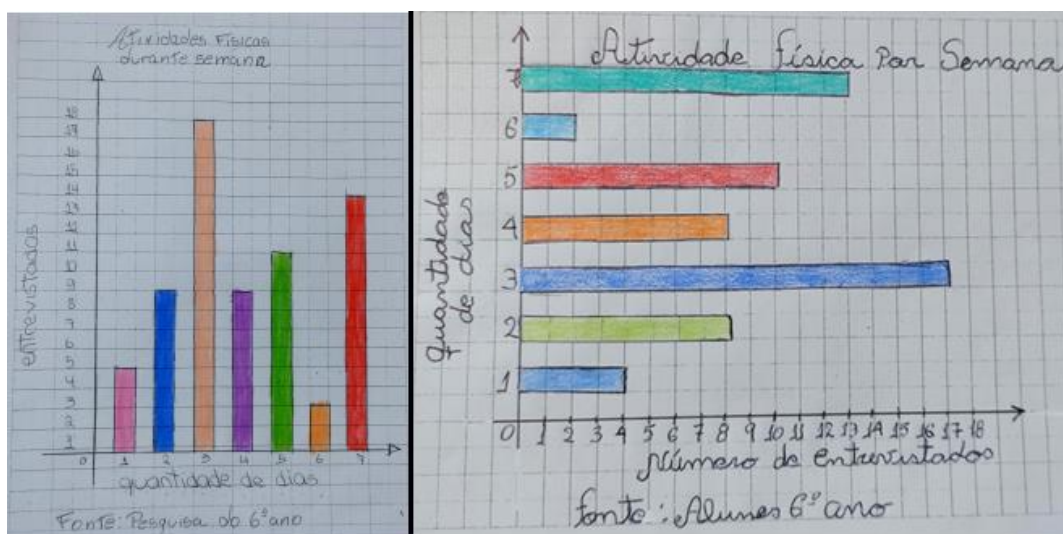 Atividades Físicas
durante semana
entrevistados
18
17
16
15
14
13
12
11
10
9
8
7
6
5
4
3
2
1
0
1 2 3 4 5 6 7
quantidade de dias
Fonte: Pesquisa do 6º ano
Atividade física Por Semana
quantidade
de dias
7
6
5
4
3
2
1
0 1 2 3 4 5 6 7 8 9 10 11 12 13 14 15 16 17 18
Número de entrevistados
fonte: Alunes 6º ano